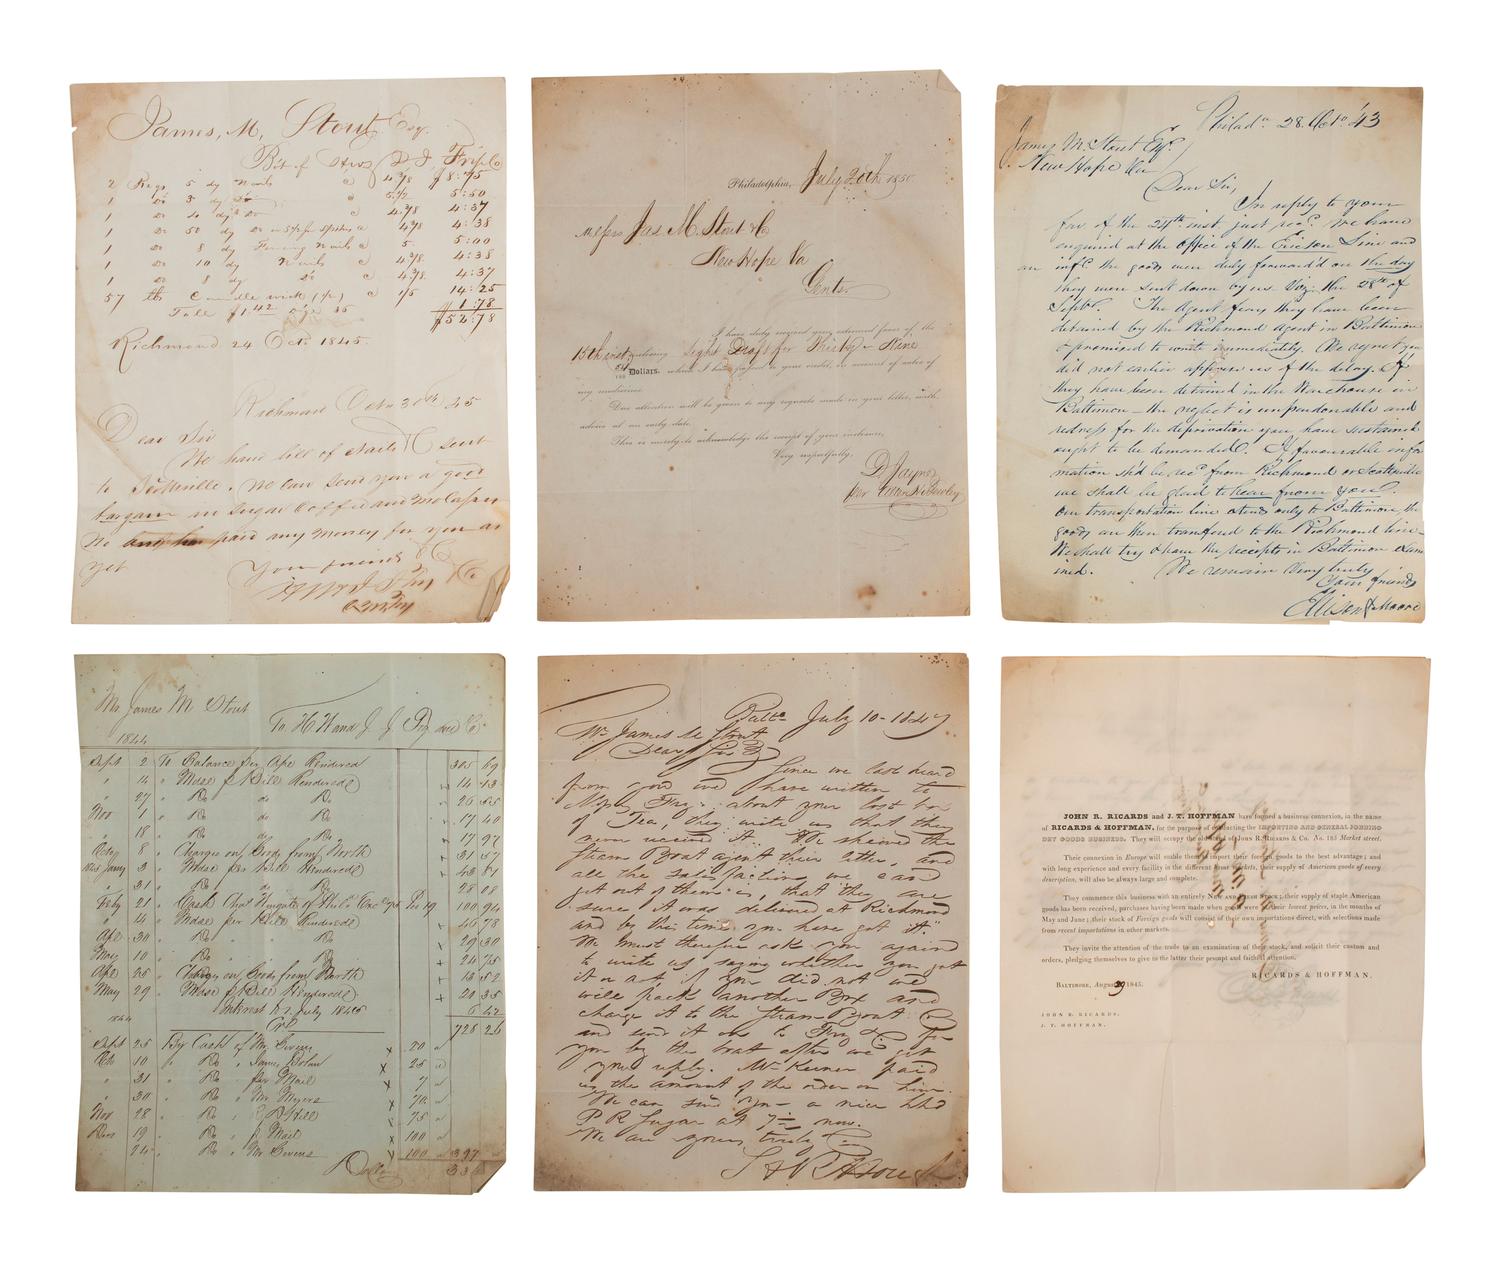 James, M, Stout Esq.
2 Kegs 5 dy Nails @ 4 7/8 $8:75
1 Do 3 dy Do 5 1/2 5:50
1 Do 4 dy Do @ 4 7/8 4:37
1 Do 50 dy Do @ 4 7/8 4:38
1 Do 8 dy Fencing Nails @ 5 5:00
1 Do 10 dy Nails @ 4 7/8 4:38
1 Do 8 dy Do @ 4 7/8 4:37
57 lbs Candle wick @ 14:25
1:78
$52:78
Richmond 24 Oct. 1845.
Richmond Octo 30th 45
Dear Sir
We have bill of sent
to Scottsville. We can send you a good
bargain in Sugar Coffee and
No paid any money for you as
yet
Your friends
Philadelphia, July 20th 1850
Messrs Jas M. Stout & Co
New Hope Va
Gents.
I have duly received your esteemed favor of the
15th inst enclosing Sight Draft for Thirty-Nine
54/100 Dollars, which I have passed to your credit, on account of sales of
my medicines.
Due attention will be given to any requests made in your letter, with
advice at an early date.
This is merely to acknowledge the receipt of your inclosure.
Very respectfully,
D. Jayne
per
Philada. 28. Octo. '43
James M. Stout Esqr.
New Hope Va
Dear Sir,
In reply to your
fav of the 24th inst just recd. We have
enquired at the office of the Ericson Line and
are infd. the goods were duly forward'd on the day
they were sent down by us. Viz: the 28th of
Septr. The Agent fears they have been
detained by the Richmond agent in Baltimore
& promised to write immediately. We regret you
did not earlier apprise us of the delay. If
they have been detained in the Warehouse in
Baltimore - the neglect is unpardonable and
redress for the deprivation you have sustained
ought to be demanded. If favourable infor
mation sh'd be recd from Richmond or Scottsville
we shall be glad to hear from you.
Our transportation line extends only to Baltimore, the
goods are then transferred to the Richmond line -
We shall try & have the receipts in Baltimore exam
ined. We remain Very truly
Your friends
Ellison & Moore
Mr James M Stout
To H W and J. J. Fry
1844
Sept 2 To Balance per Apc Rendered 305 69
" 14 " Mdse p Bill Rendered 14 43
" 27 " Do do Do 26 55
Nov 1 " Do do Do 17 40
" 18 " Do do Do 17 97
8 " Charges on Goods from North 31 57
1845 Jany 3 " Mdse per Bill Rendered 43 81
" 31 " Do do Do 28 08
Feby 21 " Cash 100 94
" 14 " Mdse per Bill Rendered 46 78
Apl 30 " " " " 29 30
May 10 " Do " Do 24 75
Apl 25 " Charges on Goods from North 13 52
May 29 " Mdse p Bill Rendered 20 35
Interest to 1 July 1845 6 42
1844 728 26
Sept 25 By Cash of Mr. Givens 20
10 " Do " James Bolan 25
" 31 " Do " per Mail 7
" 30 " Do " Mr Myers 70
Nov 28 " Do " Hill 75
19 " Do " Mail 100
24 " Do " Mr Givens 100 397
Balto July 10 - 1847
Mr. James M Stout
Dear Sir
Since we last heard
from you we have written to
Messrs Fry. about your lost box
of Tea, they write us that they
never received it. We shewed the
Steam Boat agent their letter, and
all the satisfaction we can
get out of them is, that they are
sure it was delivered at Richmond
and by this time you have got it."
We must therefore ask you again
to write us saying whether you got
it or not, if you did not we
will pack another Box and
charge it to the Steam Boat Co
and send it on to Fry & Co for
you by the boat after we get
your reply. Mr Keiner paid
us the amount of the order on him.
We can send you a nice hhd
P R Sugar at 7 1/2 now.
We are yours truly
JOHN R. RICARDS and J. T. HOFFMAN have formed a business connexion, in the name
of RICARDS & HOFFMAN, for the purpose of conducting the IMPORTING AND GENERAL JOBBING
DRY GOODS BUSINESS. They will occupy the old stand of John R. Ricards & Co. No. 183 Market street.
Their connexion in Europe will enable them to import their foreign goods to the best advantage; and
with long experience and every facility in the different home markets, their supply of American goods of every
description, will also be always large and complete.
They commence this business with an entirely NEW AND FRESH STOCK; their supply of staple American
goods has been received, purchases having been made when goods were at their lowest prices, in the months of
May and June; their stock of Foreign goods will consist of their own importations direct, with selections made
from recent importations in other markets.
They invite the attention of the trade to an examination of their stock, and solicit their custom and
orders, pledging themselves to give to the latter their prompt and faithful attention.
RICARDS & HOFFMAN.
BALTIMORE, August 29 1845.
JOHN R. RICARDS,
J. T. HOFFMAN.